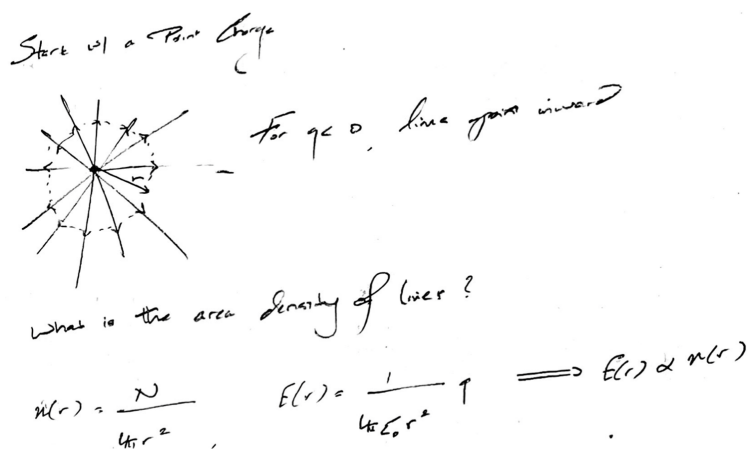 Start w/ a Point Charge
r
For q < 0, lines point inward
What is the area density of lines?
n(r) = N / 4πr², E(r) = 1 / 4πε₀r² q ⟹ E(r) ∝ n(r)